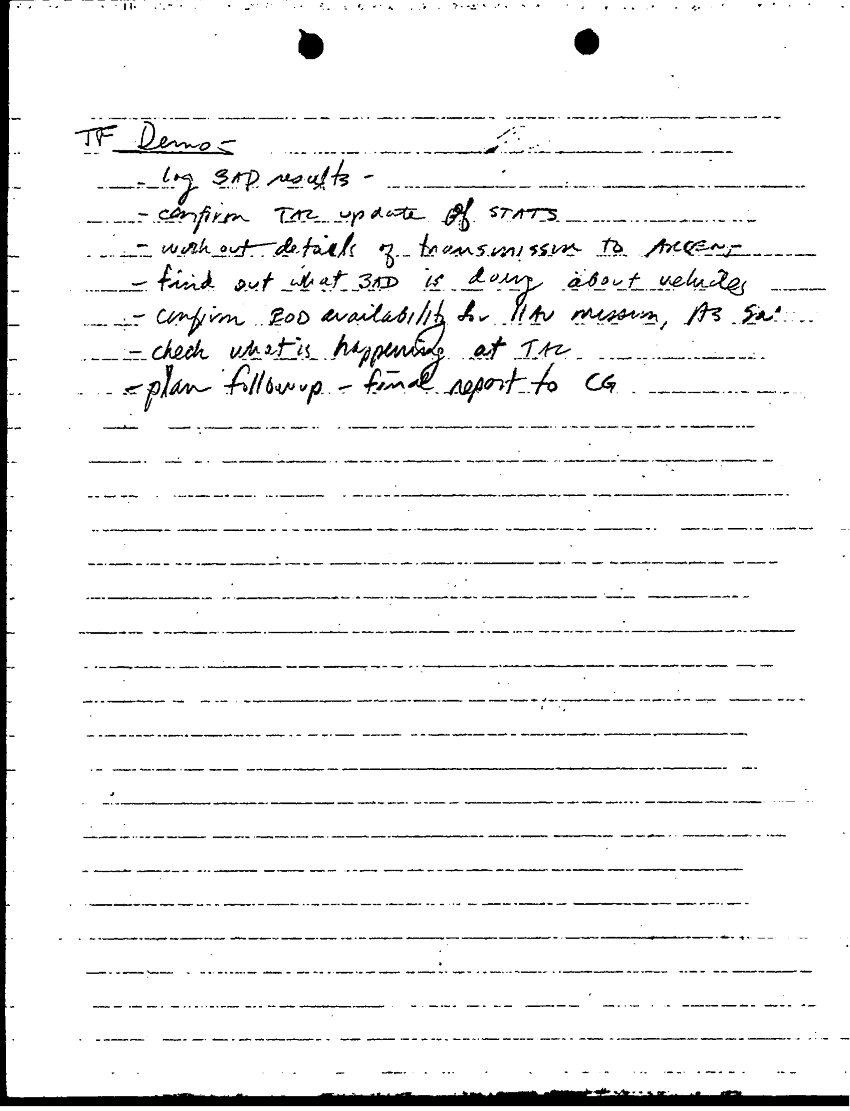 TF Demo -
- log 3AD results -
- confirm TAC update of STATS
- work out details of transmission to ARCENT
- find out what 3AD is doing about vehicles
- confirm EOD availability for mission, As
- check what is happening at TAC
- plan followup - final report to CG